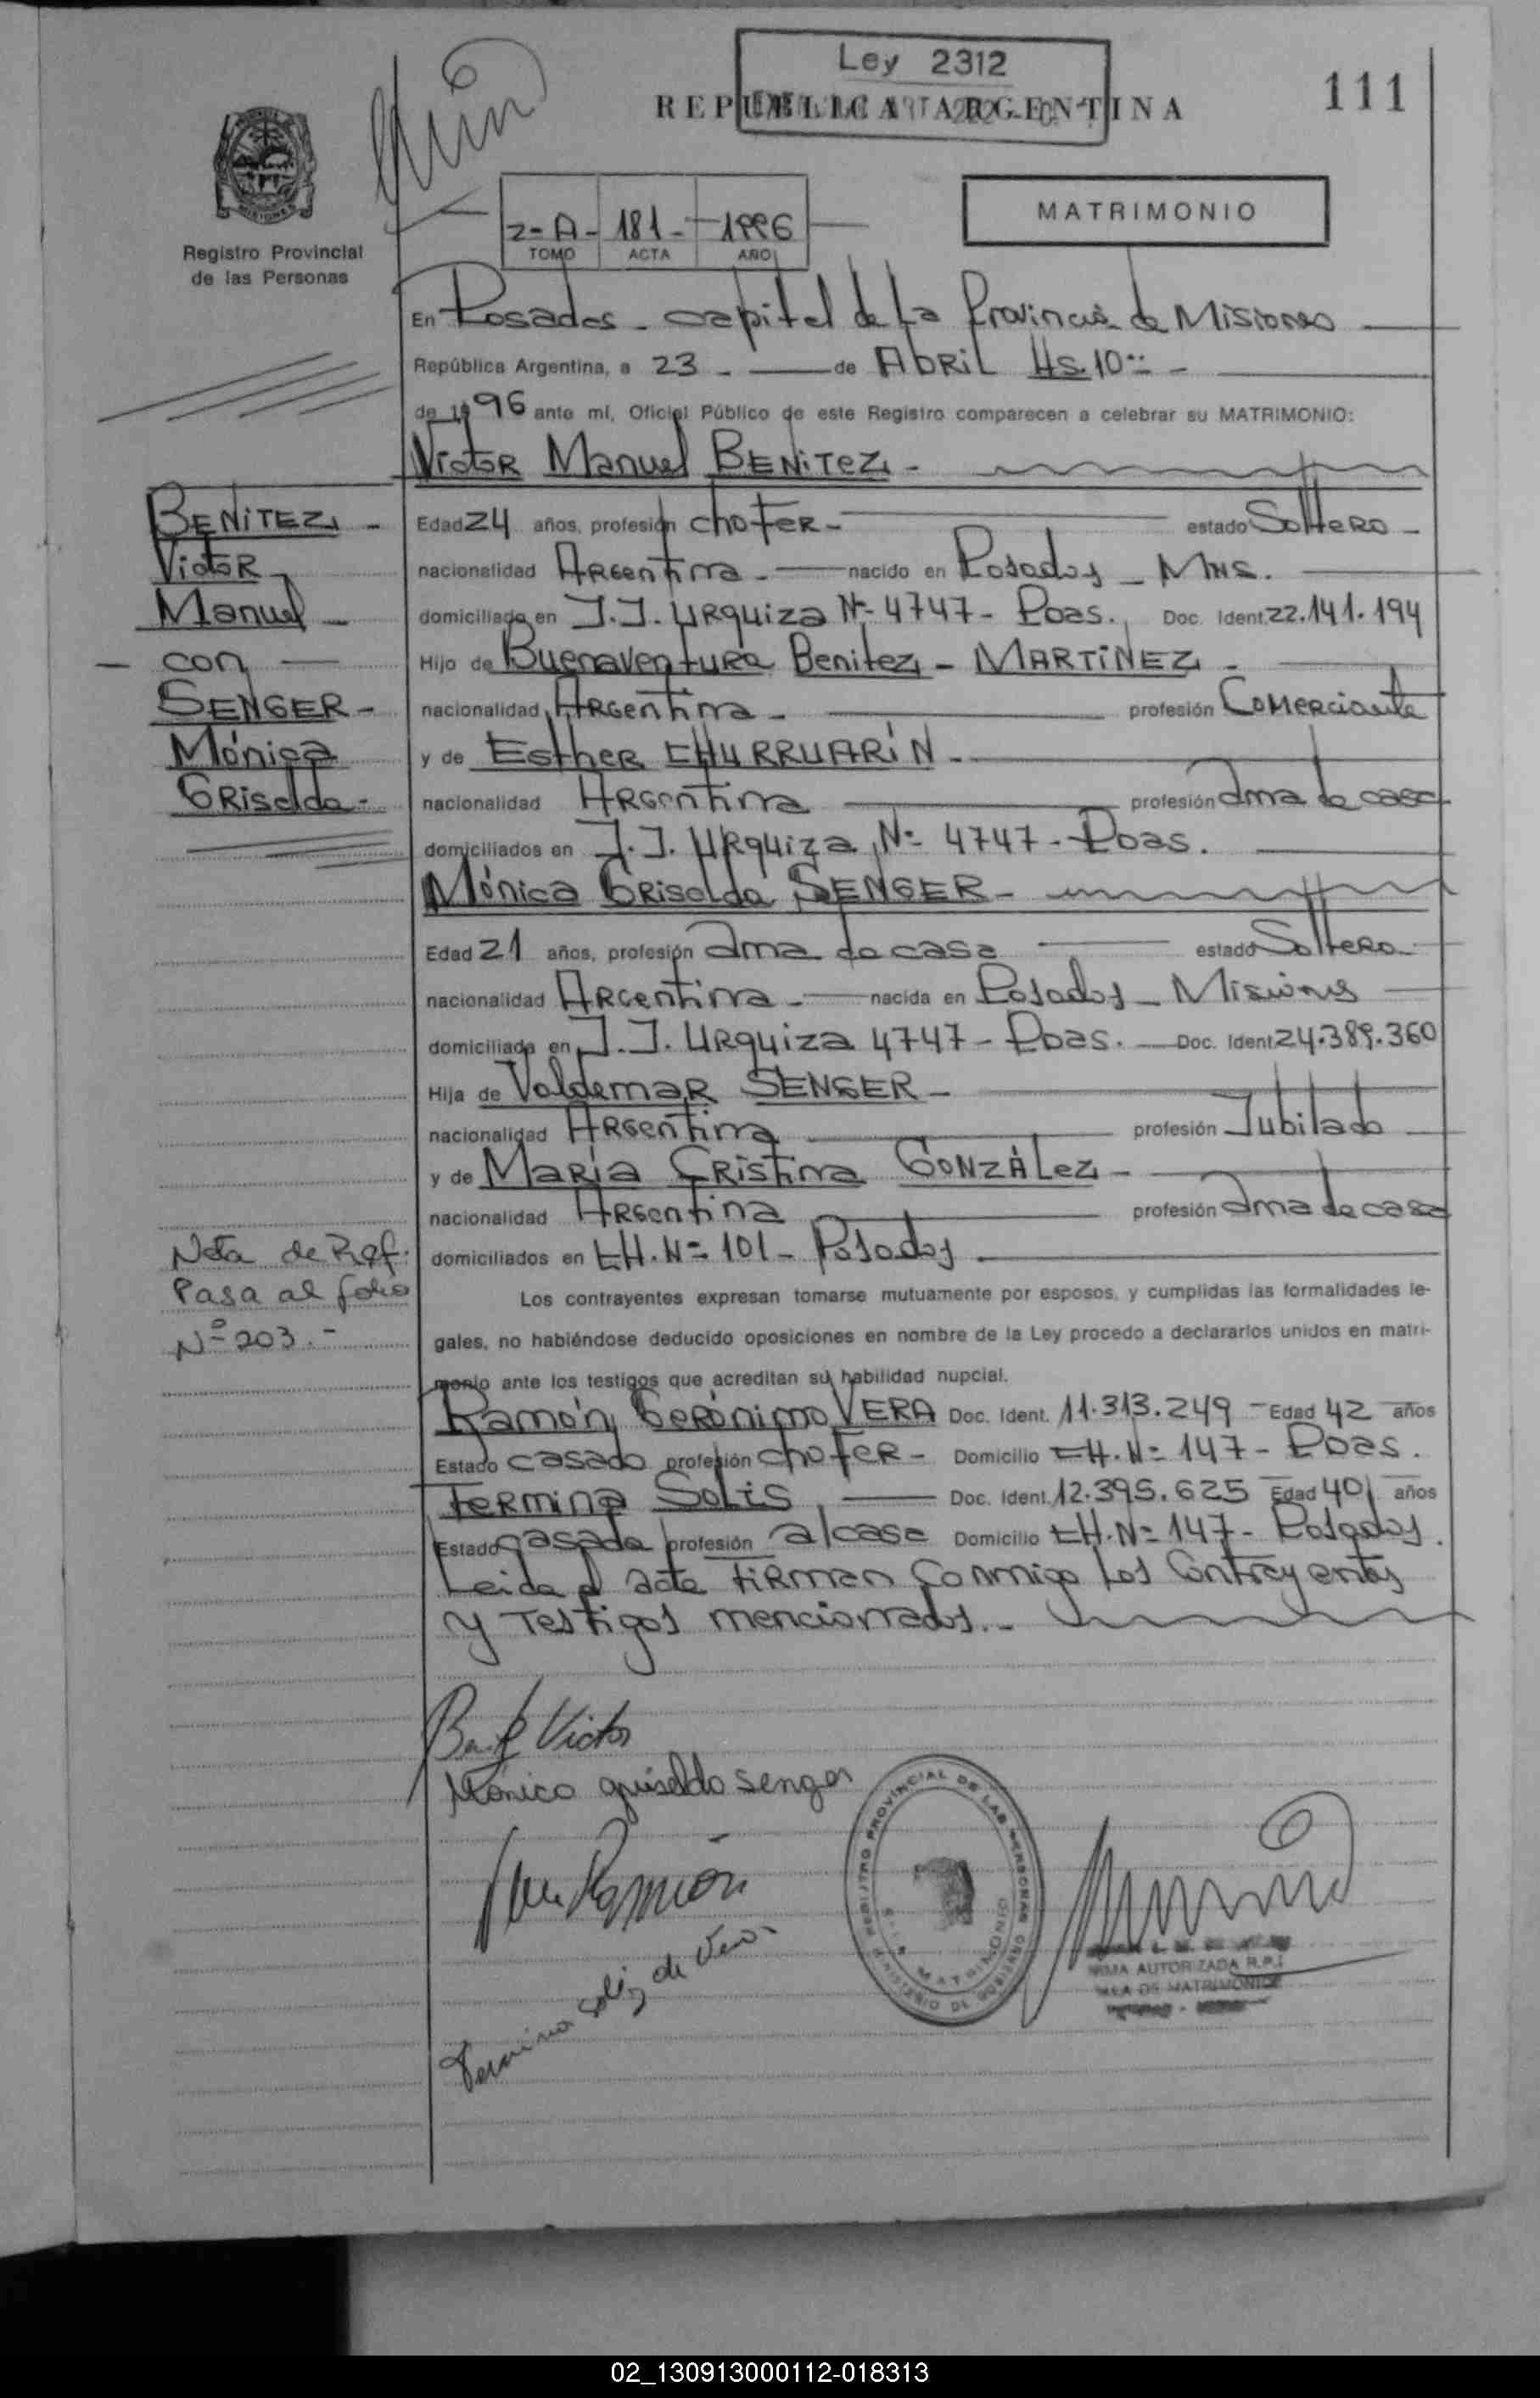 Ley 2312
REPUBLICA ARGENTINA
111
Registro Provincial
de las Personas
2-A- 181- 1996
TOMO ACTA AÑO
MATRIMONIO
En Posadas - capital de La Provincia de Misiones
República Argentina, a 23 - de ABRIL Hs. 10
de 1996 ante mí, Oficial Público de este Registro comparecen a celebrar su MATRIMONIO:
Victor Manuel BENITEZ -
Edad 24 años, profesión choFER - estado SolteRO -
nacionalidad ARGentina - nacido en Posadas - Mns.
domiciliado en J.J. URquiza Nº 4747 - Poas. Doc. Ident. 22.141.194
Hijo de BuenaventuRa Benitez - MARTINEZ -
nacionalidad ARGentina - profesión Comerciante
y de EstheR CHURRUARIN -
nacionalidad ARGentina profesión ama de casa
domiciliados en J.J. URquiza Nº 4747 - Poas.
Mónica GRiselda SENGER -
Edad 21 años, profesión ama de casa estado SolteRa
nacionalidad ARGentina - nacida en Posadas - Misiones
domiciliada en J.J. URquiza 4747 - Poas. Doc. Ident. 24.389.360
Hija de ValdemaR SENGER -
nacionalidad ARGentina profesión Jubilado
y de MaRía CRistina GONZÁLez -
nacionalidad ARGentina profesión ama de casa
domiciliados en CH. Nº 101 - Posadas
Los contrayentes expresan tomarse mutuamente por esposos, y cumplidas las formalidades le-
gales, no habiéndose deducido oposiciones en nombre de la Ley procedo a declararlos unidos en matri-
monio ante los testigos que acreditan su habilidad nupcial.
Ramón GeRónimo VERA Doc. Ident. 11.313.249 - Edad 42 años
Estado casado profesión choFeR - Domicilio CH. Nº 147 - Poas.
FeRmina SoLis Doc. Ident. 12.395.625 Edad 40 años
Estado casada profesión a/casa Domicilio CH. Nº 147 - Posadas.
Leida el acta FiRman Conmigo Los Contrayentes
y Testigos mencionados. -
BENITEZ -
VictoR
Manuel
- con -
SENGER -
Mónica
GRiselda -
Nota de Ref.
Pasa al folio
Nº 203. -
Victor
Mónica griselda senger
Ramón
Fermina Solis de Vera
REGISTRO PROVINCIAL DE LAS PERSONAS
MINISTERIO DE GOBIERNO
MATRIMONIO
FIRMA AUTORIZADA R.P.
AREA DE MATRIMONIOS
02_130913000112-018313